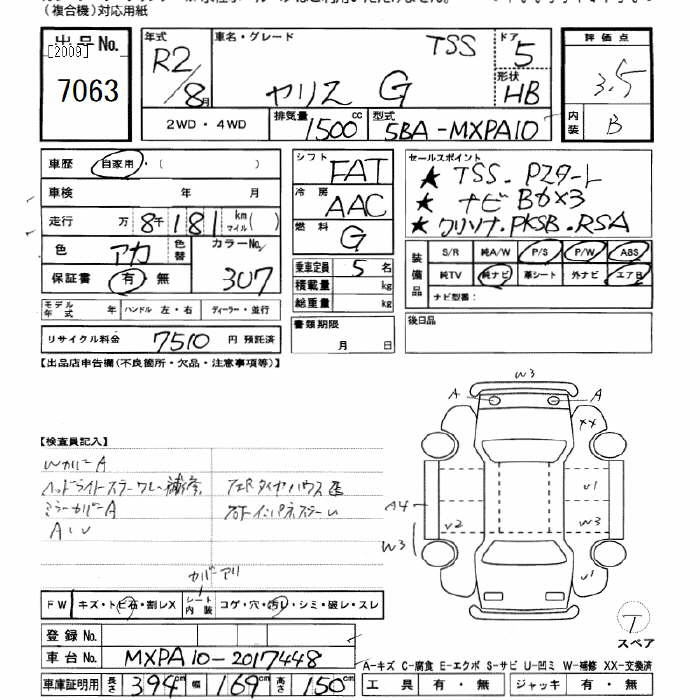 (複合機)対応用紙
出品No.
[2009]
7063
年式 R2/8月
車名・グレード TSS
ヤリス G
ドア 5
形状 HB
2WD・4WD
排気量 1500 cc
型式 5BA-MXPA10
評価点
3.5
内装 B
車歴 自家用・( )
車検 年 月
走行 万 8千 181 km マイル( )
色 アカ 色替 カラーNo. 307
保証書 有・無
モデル年式 年 ハンドル 左・右 ディーラー・並行
リサイクル料金 7510 円 預託済
シフト FAT
冷房 AAC
燃料 G
乗車定員 5 名
積載量 kg
総重量 kg
書類期限
月 日
セールスポイント
★ TSS. Pスタート
★ ナビ Bカメラ
★ クリソナ.PKSB.RSA
装備品
S/R 純A/W P/S P/W ABS
純TV 純ナビ 革シート 外ナビ エアB
ナビ型番:
後日品
【出品店申告欄(不良箇所・欠品・注意事項等)】
【検査員記入】
Wカバー A
ヘッドライトスラークレー補修
ミラーカバー A
A・U
左Rタイヤハウス歪
右Fインパネスラーレ
カバーアリ
FW キズ・トビ石・割レX
シート内装 コゲ・穴・汚レ・シミ・破レ・スレ
W3
A
A
XX
U1
A4
U2
W3
W3
U1
T
スペア
登録No.
車台No. MXPA10-2017448
車庫証明用 長さ 394cm 幅 169cm 高さ 150cm
A-キズ C-腐食 E-エクボ S-サビ U-凹ミ W-補修 XX-交換済
工具 有・無 ジャッキ 有・無